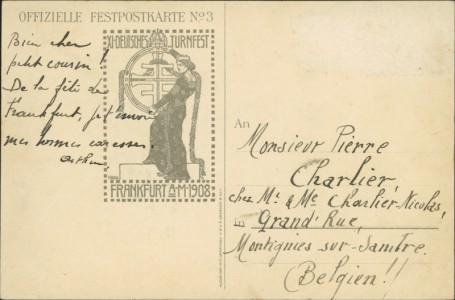 OFFIZIELLE FESTPOSTKARTE No 3
XI. DEUTSCHES TURNFEST
FRANKFURT A.M. 1908
Bien cher
petit cousin!
De la fête de
Frankfurt, je t'envoie
mes bonnes caresses.
Arthur
An
Monsieur Pierre
Charlier,
chez Mr. & Me Charlier-Nicolas,
in Grand'Rue,
Montignies sur-Sambre.
(Belgien!!